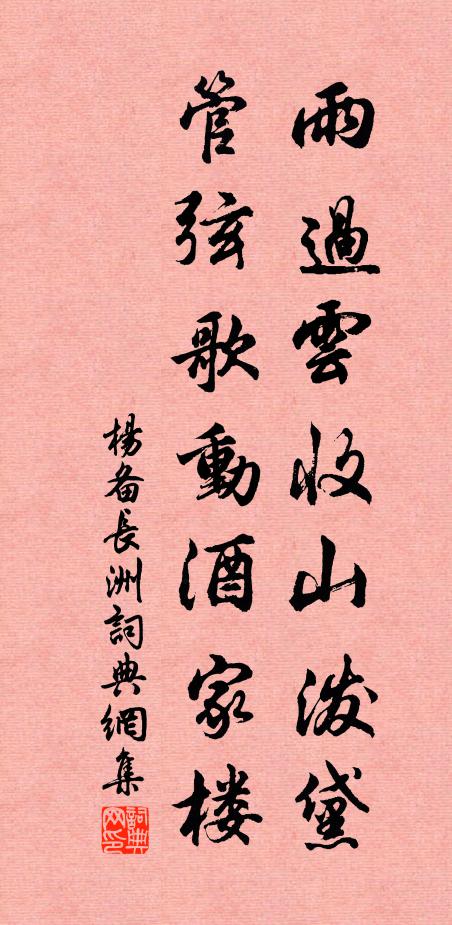 雨過雲收山潑黛
管弦歌動酒家楼
楊备長洲詞典網集
詞典网印